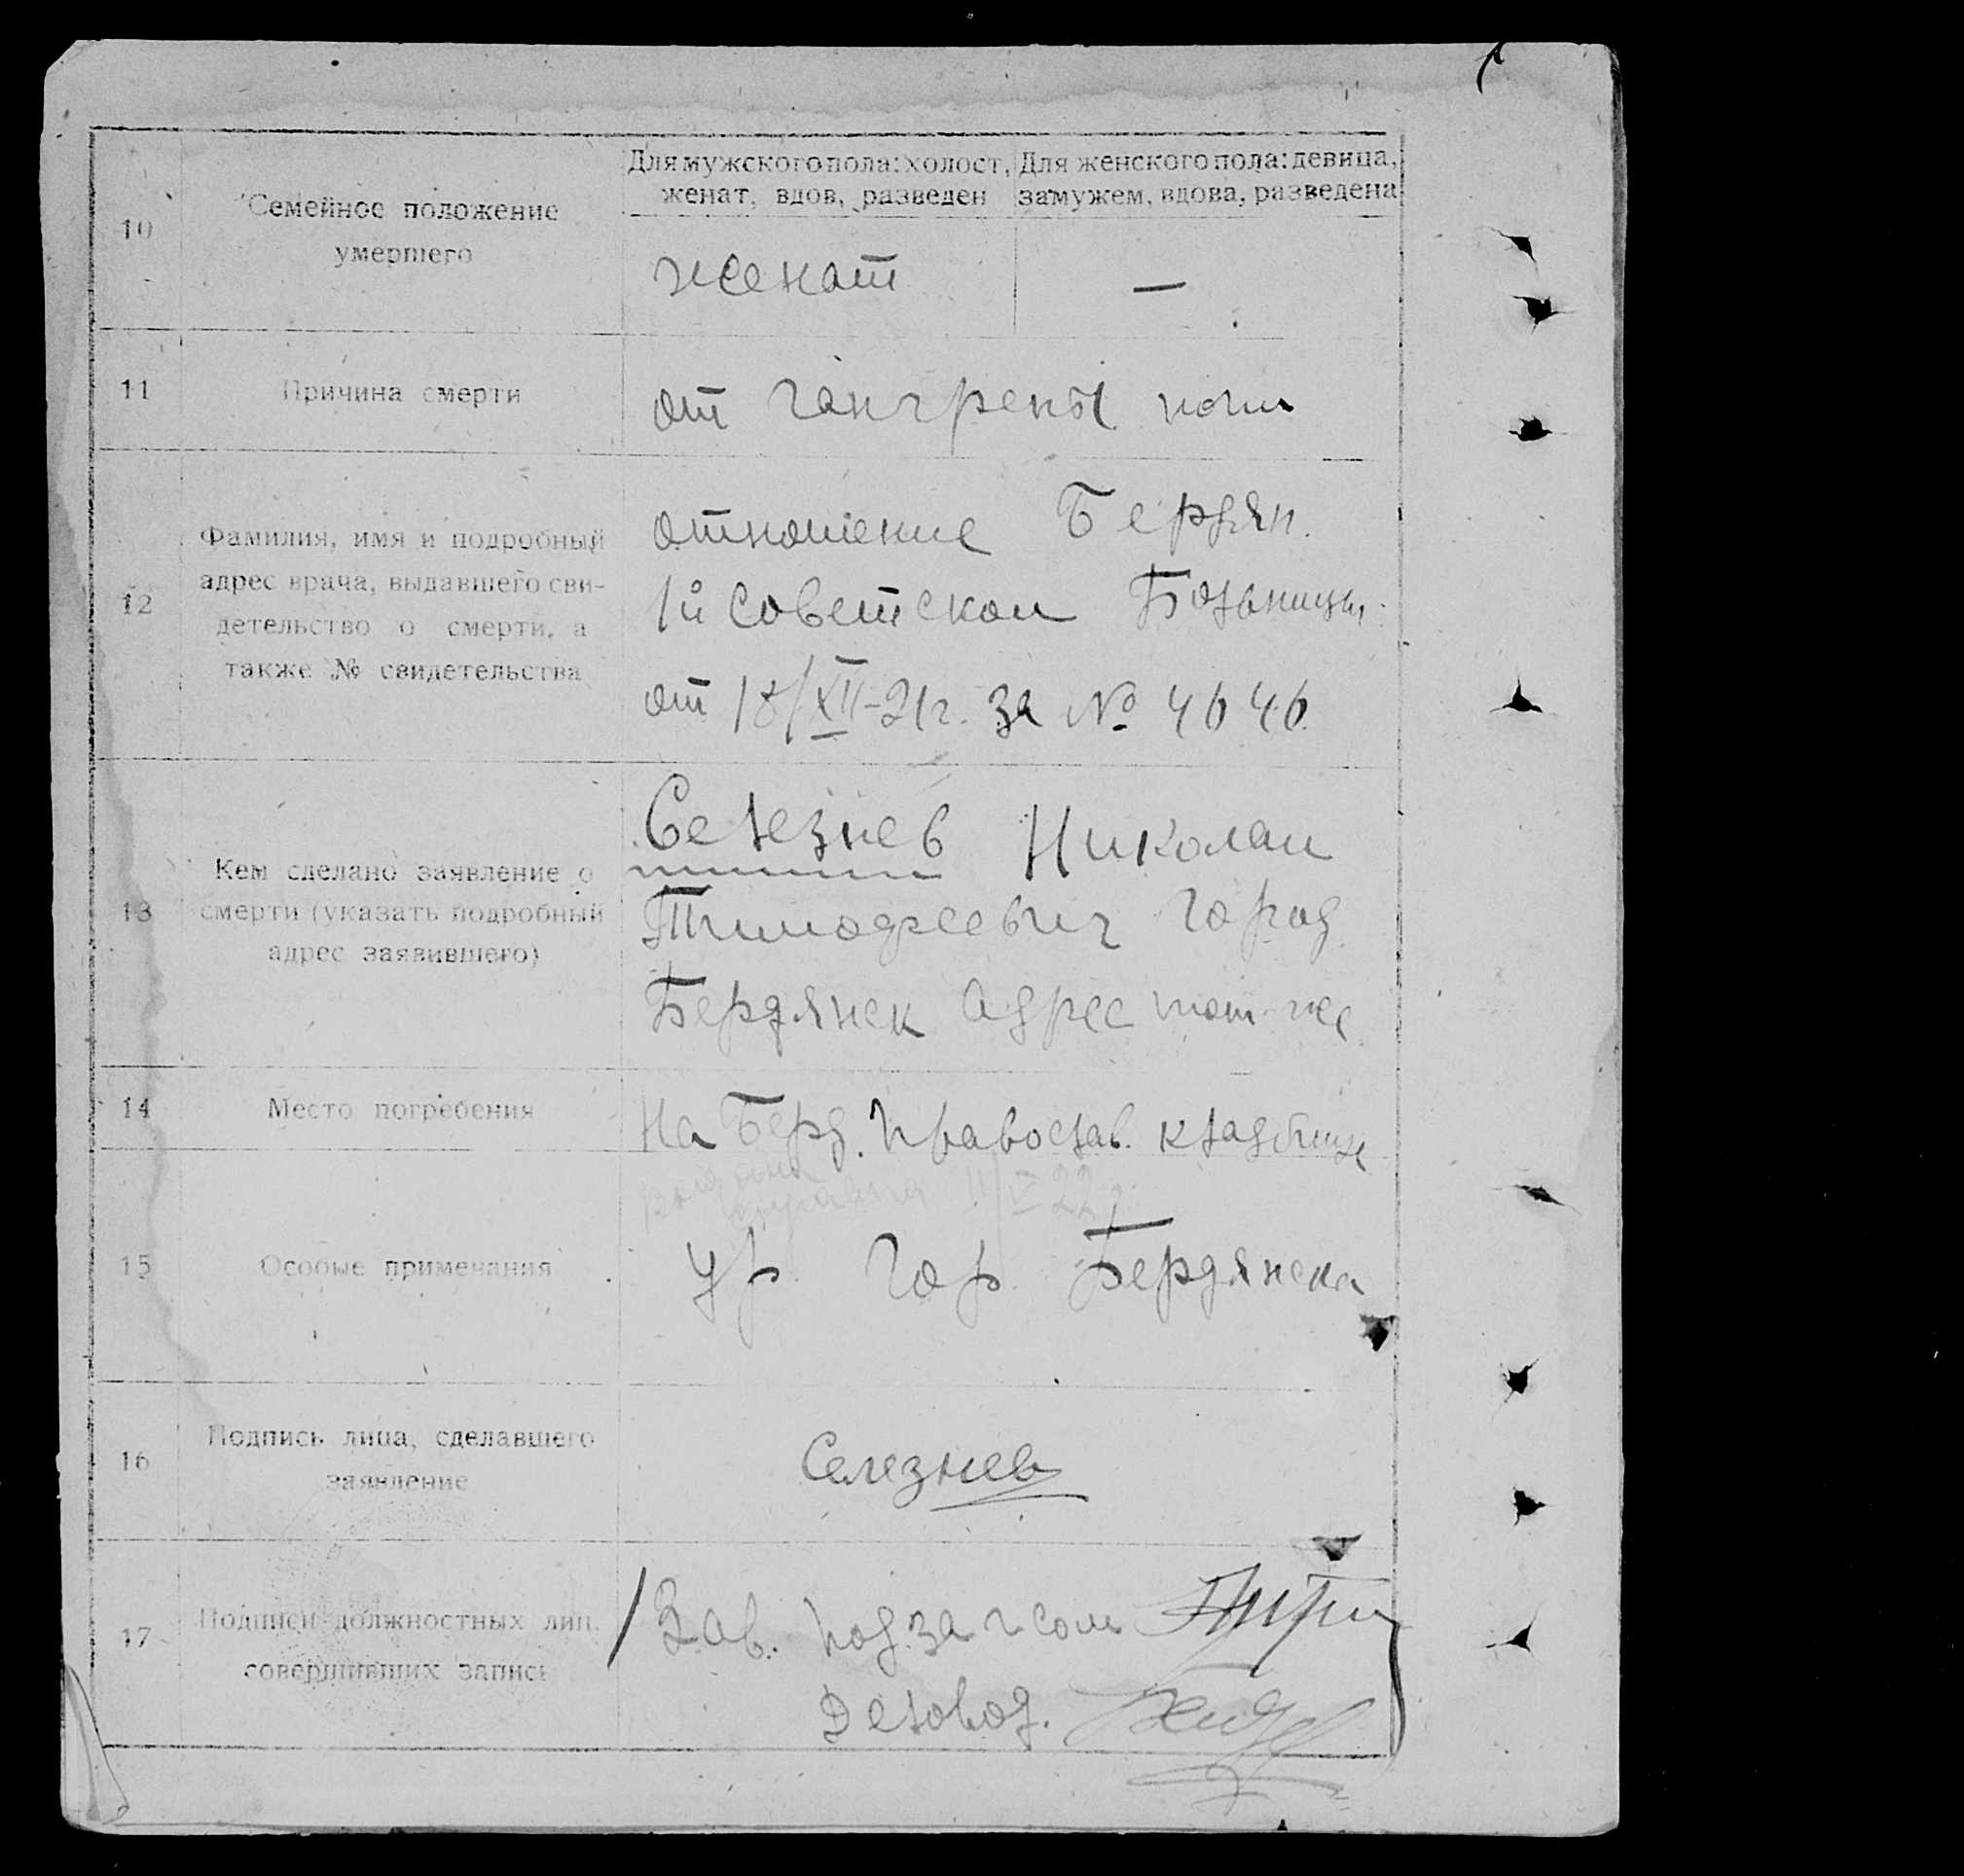 10
Семейное положение
умершего
Для мужского пола: холост,
женат, вдов, разведен
Для женского пола: девица,
замужем, вдова, разведена
женат
—
11
Причина смерти
от гангрены ноги
12
Фамилия, имя и подробный
адрес врача, выдавшего сви-
детельство о смерти, а
также № свидетельства
отношение Бердян.
1й Советской Больницы
от 18/XII-21г. за № 4646
13
Кем сделано заявление о
смерти (указать подробный
адрес заявившего)
Селезнев Николай
Тимофеевич город
Бердянск Адрес тот-же
14
Место погребения
На Берд. Православ. кладбище
15
Особые примечания
справка 11/V 22
Ур. Гор. Бердянска
16
Подпись лица, сделавшего
заявление
Селезнев
17
Подписи должностных лиц,
совершивших запись
Зав. Под.загсом
Деловод.